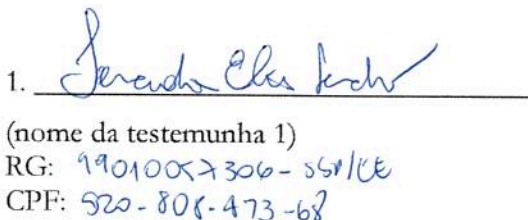 1.
(nome da testemunha 1)
RG: 99010057306-SSP/CE
CPF: 520-808-473-68